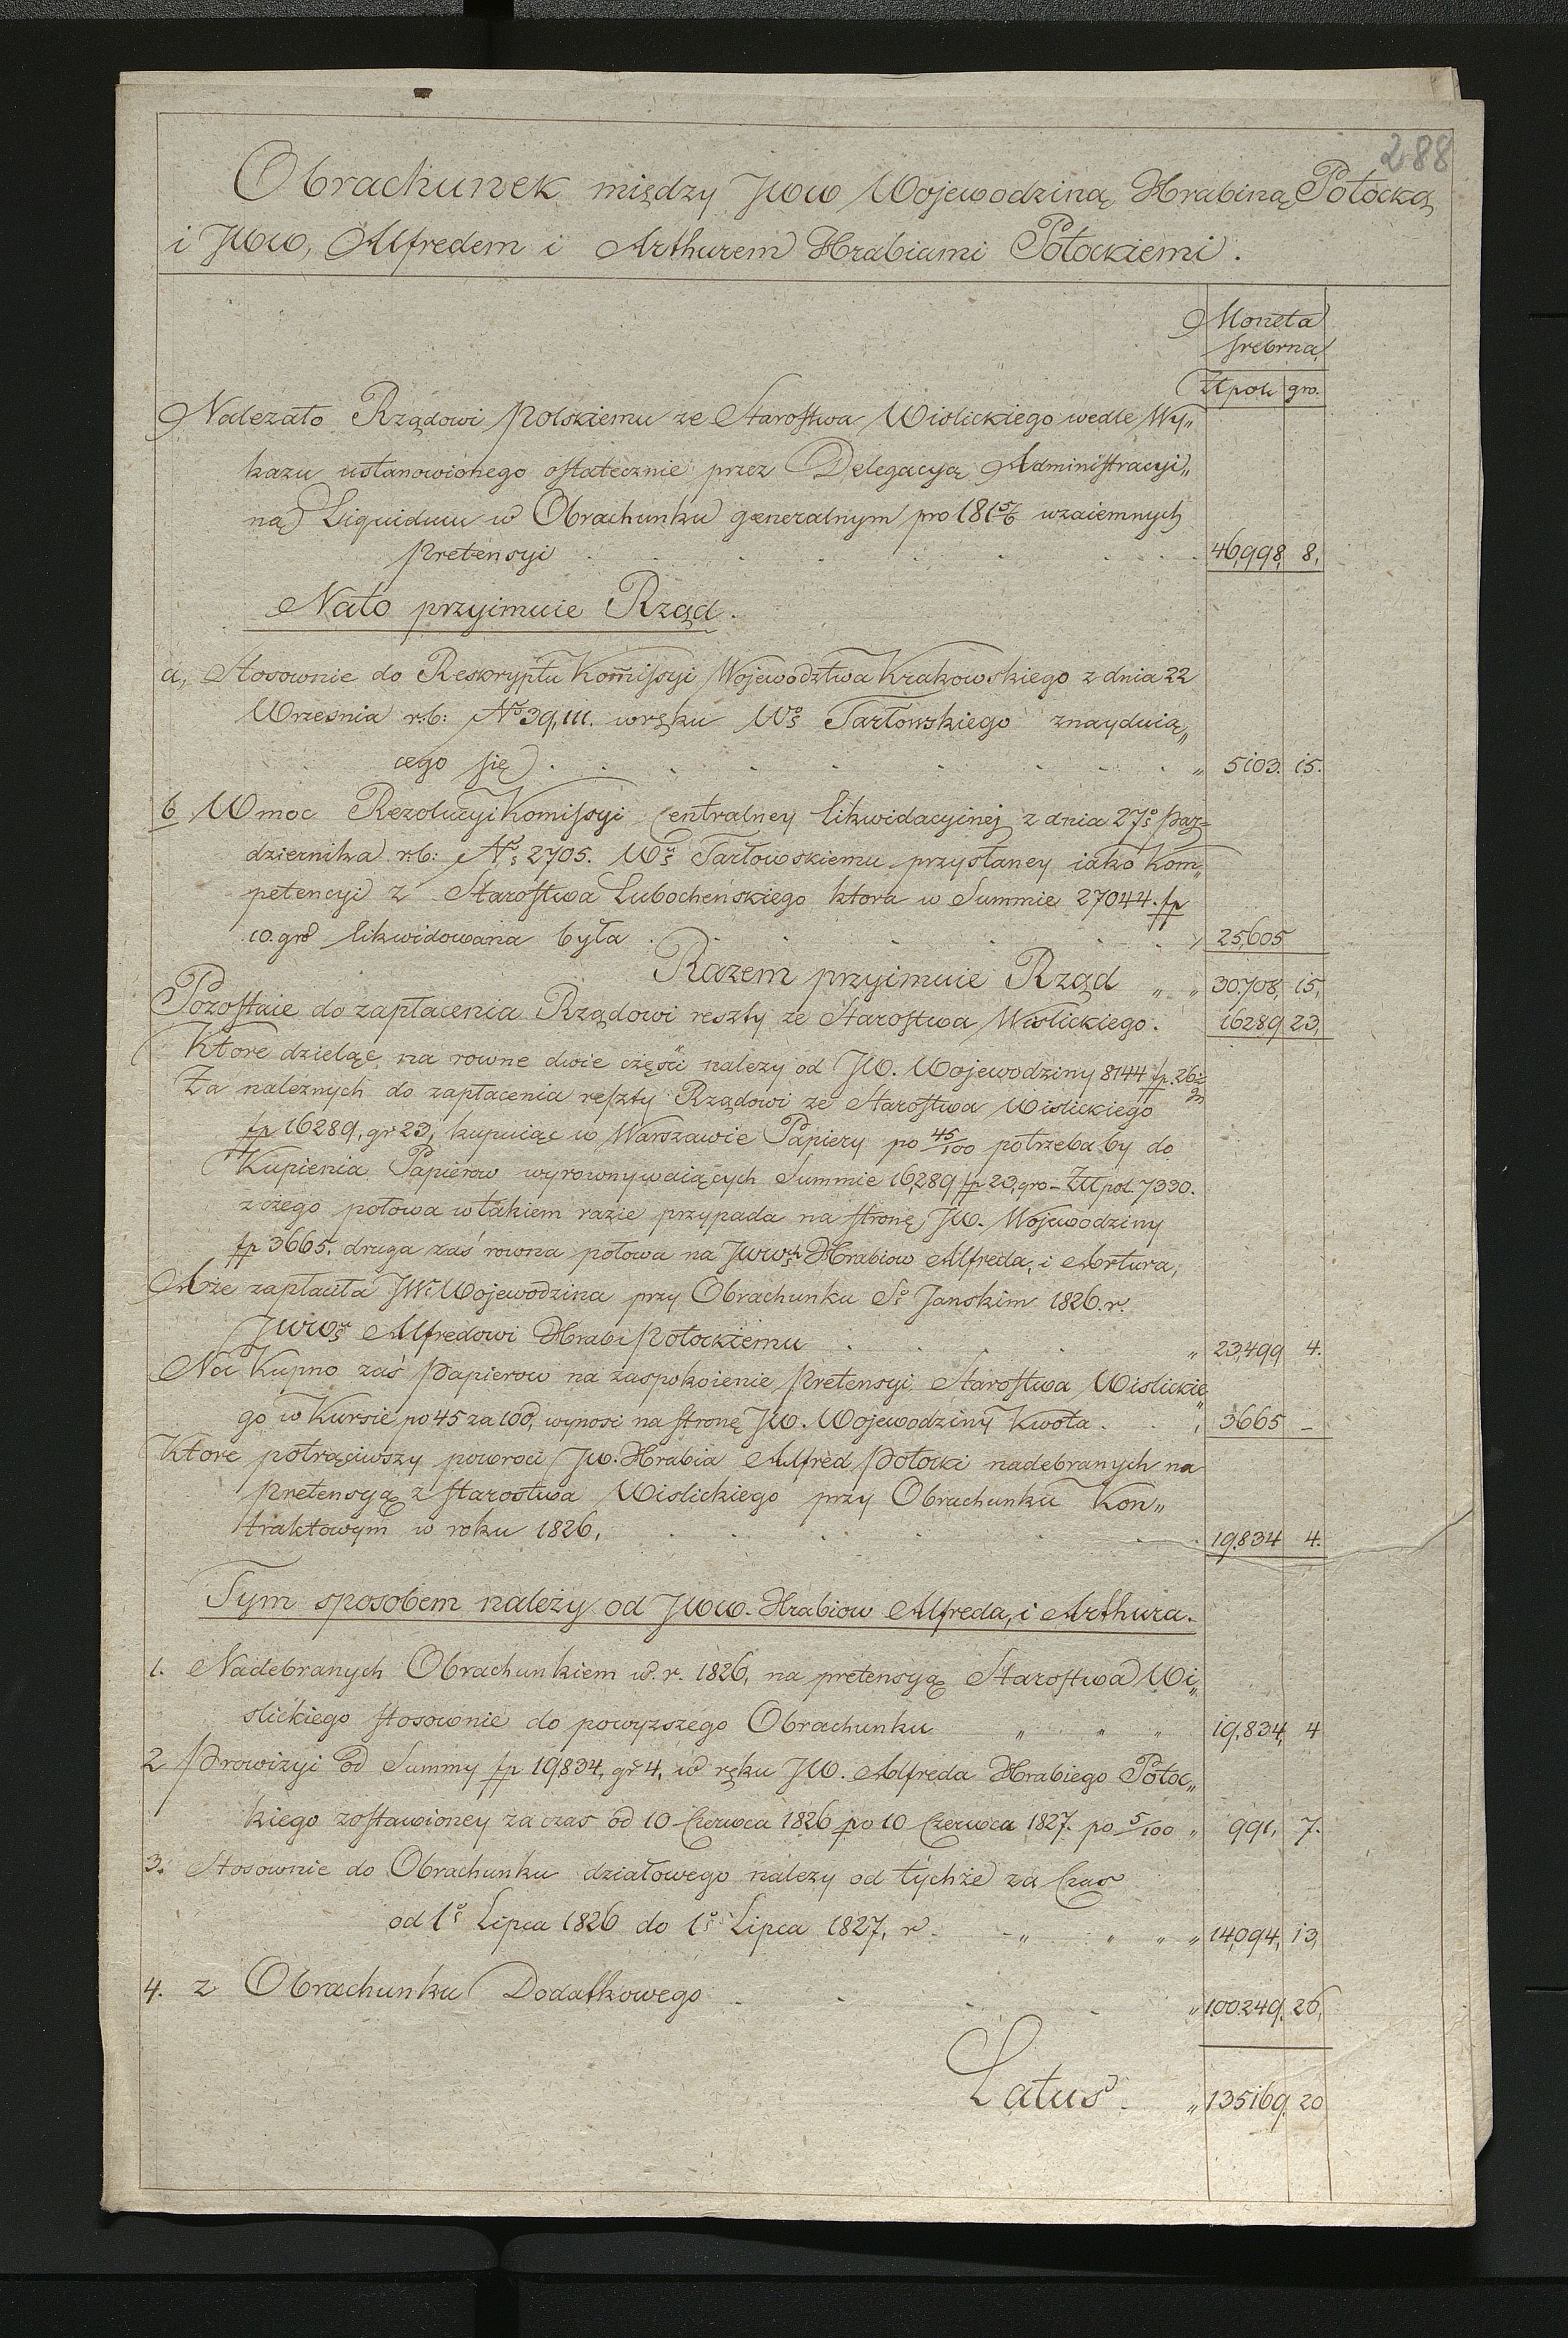 288
Obrachunek między JWW Wojewodziną Hrabiną Potocką
i JWW, Alfredem i Arthurem Hrabiami Potockiemi.
Moneta
srebrna
Złpol: gro.
Należało Rządowi Polskiemu ze Starostwa Wislickiego wedle Wy„
kazu ustanowionego ostatecznie przez Delegacyą Administracyi„
ną Liquidum w Obrachunku generalnym pro 1815/6 wzaiemnych
Pretensyi . . . . . 46,998, 8,
Nato przyimuie Rząd.
a, Stosownie do Reskryptu Kom̄issyi Wojewodztwa Krakowskiego z dnia 22
Wrzesnia r.b: No 39,111. wręku Wo Tarłowskiego znayduią„
cego się . . . . . „ 5103. 15.
b W moc Rezolucyi Komissyi Centralney likwidacyinej z dnia 27o Paz„
dziernika r.b: No 2705. Wo Tarłowskiemu przysłaney iako Kom„
petencyi z Starostwa Lubocheńskiego ktora w Summie 27044. fp
10. gro likwidowana była . . . . 25,605
Razem przyimuie Rząd „ „ 30,708, 15,
Pozostaie do zapłacenia Rządowi reszty ze Starostwa Wislickiego. 16289 23,
Ktore dzieląc na rowne dwie części należy od JW. Wojewodziny 8144 fp. 26½ gr
Za należnych do zapłacenia reszty Rządowi ze Starostwa Wislickiego
fp 16289, gr 23, kupuiąc w Warszawie Papiery po 45/100 potrzeba by do
Kupienia Papierow wyrownywaiących Summie 16,289 fp 23, gro - Złpol. 7330.
z czego połowa w takiem razie przypada na stronę JW. Wojewodziny
fp 3665. druga zaś rowna połowa na JWWch Hrabiow Alfreda, i Artura,
Aże zapłaciła JW. Wojewodzina przy Obrachunku So Janskim 1826. r.
JWW Alfredowi Hrabi Potockiemu . . . „ 23,499 4.
Na Kupno zaś Papierow na zaspokoienie Pretensyi Starostwa Wislickie„
go w Kursie po 45 za 100, wynosi na stronę JW. Wojewodziny Kwota . . „ 3665 –
Ktore potrąciwszy powroci JW. Hrabia Alfred Potocki nadebranych na
Pretensyą z Starostwa Wislickiego przy Obrachunku Kon„
traktowym w roku 1826, . . . . . 19,834 4.
Tym sposobem należy od JWW. Hrabiow Alfreda, i Arthura.
1. Nadebranych Obrachunkiem w. r. 1826, na pretensyą Starostwa Wi„
slickiego stosownie do powyzszego Obrachunku „ „ „ 19,834, 4
2 Prowizyi od Summy fp 19,834, gr 4, w ręku JW. Alfreda Hrabiego Potoc„
kiego zostawioney za czas od 10 Czerwca 1826 po 10 Czerwca 1827. po 5/100 „ 991, 7.
3. Stosownie do Obrachunku działowego należy od tychże za Czas
od 1o Lipca 1826 do 1o Lipca 1827, r. - „ „ „ „ 14,094, 13,
4. z Obrachunku Dodatkowego . . . . „ 100,249, 26,
Latus. „ 135169, 20